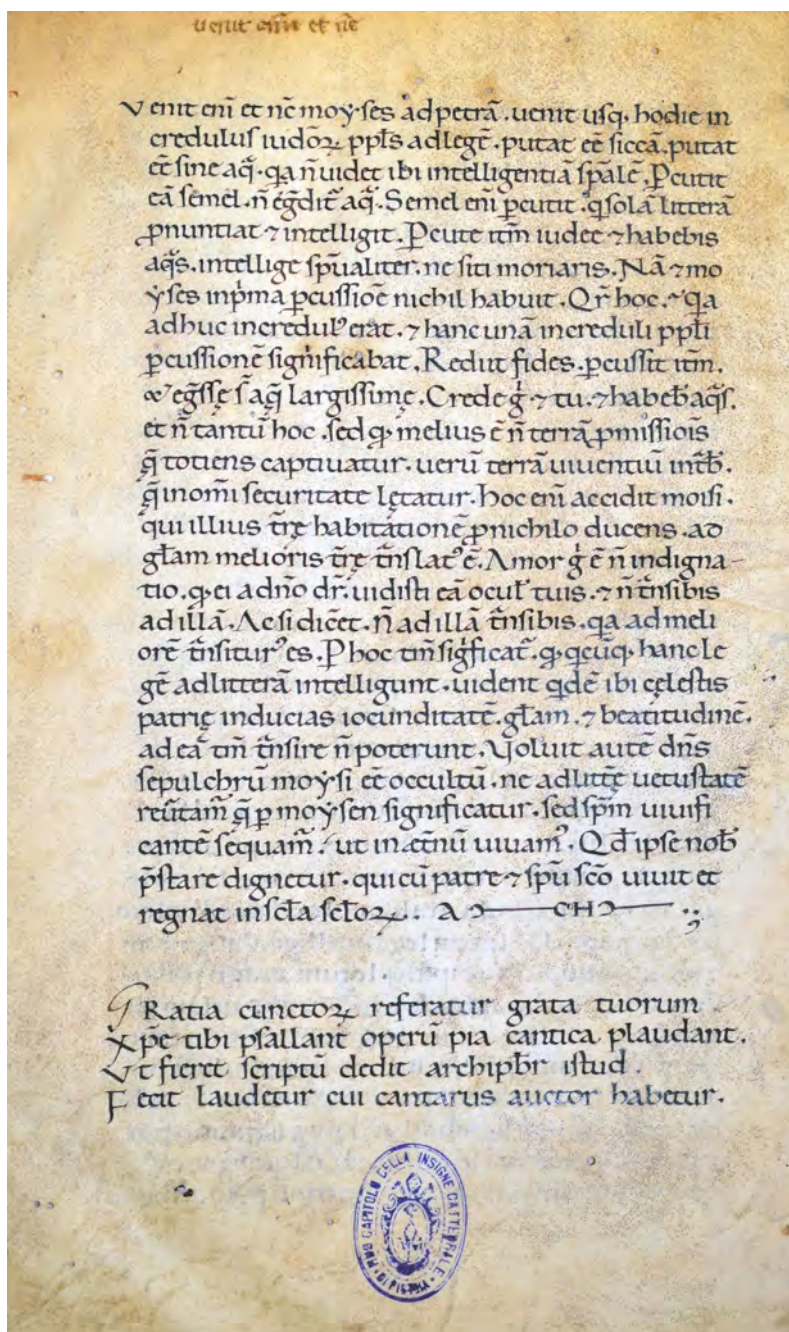 uenit eni᷑ et nc̄
Venit eni᷑ et nc̄ moẏses ad petrā. uenit usq; hodie in
credulus iudoꝝ ppl̄s ad legē. putat eē siccā. putat
eē sine aq̄. qa n̄ uidet ibi intelligentiā sp̄alē. Pꝰcutit
eā semel. n̄ eḡdit᷑ aq̄. Semel eni᷑ ꝑcutit. q solā litterā
ꝓnuntiat ⁊ intelligit. Pꝰcute itm̄ iudee ⁊ habebis
aq̄s. intellige sp̄ualiter. ne siti moriaris. Nā ⁊ mo
ẏses in pͥma ꝑcussioē nichil habuit. Qr̄ hoc. ⁊ qa
adhuc increduł erat. ⁊ hanc unā increduli ppl̄i
ꝑcussionē significabat. Rediit fides. ꝑcussit itm̄.
⁊ eḡssę s̄ aq̄ largissimę. Crede g̊ ⁊ tu. ⁊ habeb̄ aq̄s.
et n̄ tantū hoc. sed qd melius ē n̄ terrā ꝓmissiōis
q̄ totiens captiuatur. uerū terrā uiuentiū intb̄.
q̄ in om̄i securitate lętatur. hoc eni᷑ accidit moisi.
qui illius tr̄ę habitationē ꝓ nichilo ducens. ad
gl̄am melioris tr̄ę tn̄slatꝰ ē. Amor g̊ ē n̄ indigna-
tio. qd ei a dn̄o dr̄. uidisti eā ocuł tuis. ⁊ n̄ tn̄sibis
ad illā. Ac si dicēt. n̄ ad illā tn̄sibis. qa ad meli
orē tn̄siturꝰ es. Pꝰ hoc tm̄ sigficat᷑. qd qcūq; hanc le
gē ad litterā intelligunt. uident qdē ibi cęlestis
patrię inducias iocunditatē. gl̄am. ⁊ beatitudinē.
ad eā tm̄ tn̄sire n̄ poterunt. Voluit autē dn̄s
sepulchrū moẏsi eē occultū. ne ad littr̄ę uetustatē
reūtam᷑ q̄ ꝑ moẏsen significatur. sed sp̄m uiuifi
cantē sequam᷑. ut in ætn̄ū uiuamꝰ. Qd̄ ipse nob̄
p̄stare dignetur. qui cū patre ⁊ sp̄u sc̄o uiuit et
regnat in scl̄a scl̄oꝝ. A Ͻ CHϽ
GRatia cunctoꝝ referatur grata tuorum
Xp̄e tibi psallant operū pia cantica plaudant.
Vt fieret scriptū dedit archipb̄r istud.
Fecit laudetur cui cantarus auctor habetur.
CAPITOLO DELLA INSIGNE CATTEDRALE